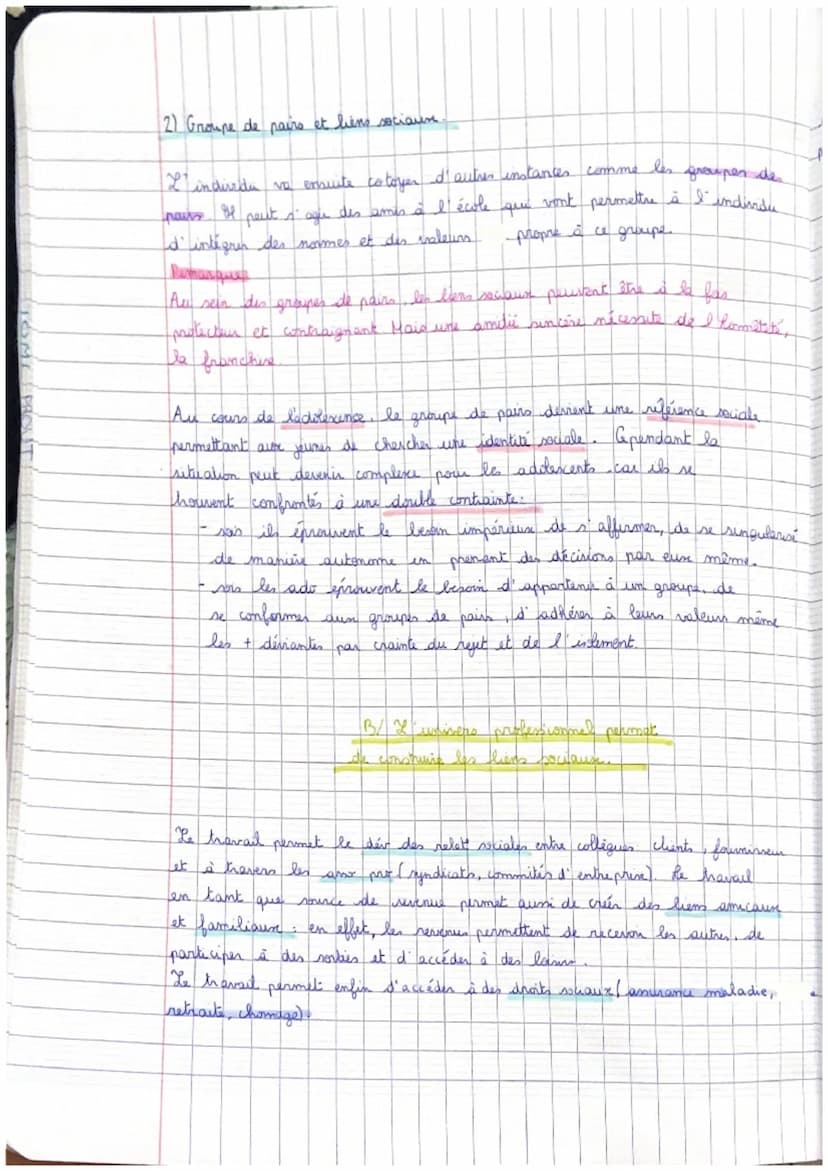 2) Groupe de pairs et liens sociaux.
L'individu va ensuite cotoyer d'autres instances comme les groupes de
pairs. Il peut s'agir des amis à l'école qui vont permettre à l'individu
d'intégrer des normes et des valeurs propre à ce groupe.
Remarque
Au sein des groupes de pairs, les liens sociaux peuvent être à la fois
protecteur et contraignant. Mais une amitié sincère nécessite de l'honnêteté,
la franchise.
Au cours de l'adolescence, le groupe de pairs devient une référence sociale
permettant aux jeunes de chercher une identité sociale. Cependant la
situation peut devenir complexe pour les adolescents car ils se
trouvent confrontés à une double contrainte:
- ils éprouvent le besoin impérieux de s'affirmer, de se singulariser
de manière autonome en prenant des décisions par eux même.
- les ado éprouvent le besoin d'appartenir à un groupe, de
se conformer aux groupes de pairs, d'adhérer à leurs valeurs même
les + déviantes par crainte du rejet et de l'isolement.
B/ L'univers professionnel permet
de construire les liens sociaux.
Le travail permet le dév des relat° sociales entre collègues clients, fournisseur
et à travers les asso pro (syndicats, commités d'entreprise). Le travail
en tant que source de revenue permet aussi de créer des liens amicaux
et familiaux : en effet, les revenus permettent de recevoir les autres, de
participer à des sorties et d'accéder à des loisirs.
Le travail permet enfin d'accéder à des droits sociaux (assurance maladie,
retraite, chomage).